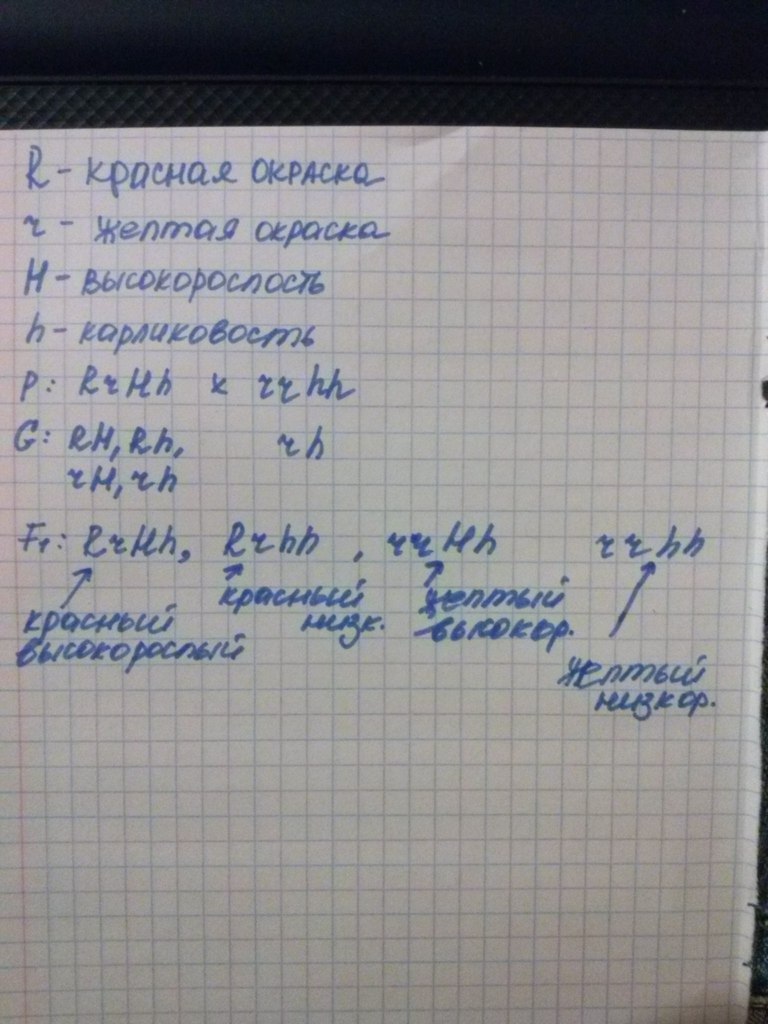 R - красная окраска
r - желтая окраска
H - высокорослость
h - карликовость
P: RrHh x rrhh
G: RH, Rh, rh
rH, rh
F1: RrHh, Rrhh, rrHh rrhh
красный низк. желтый высокор.
красный высокорослый
желтый низкор.